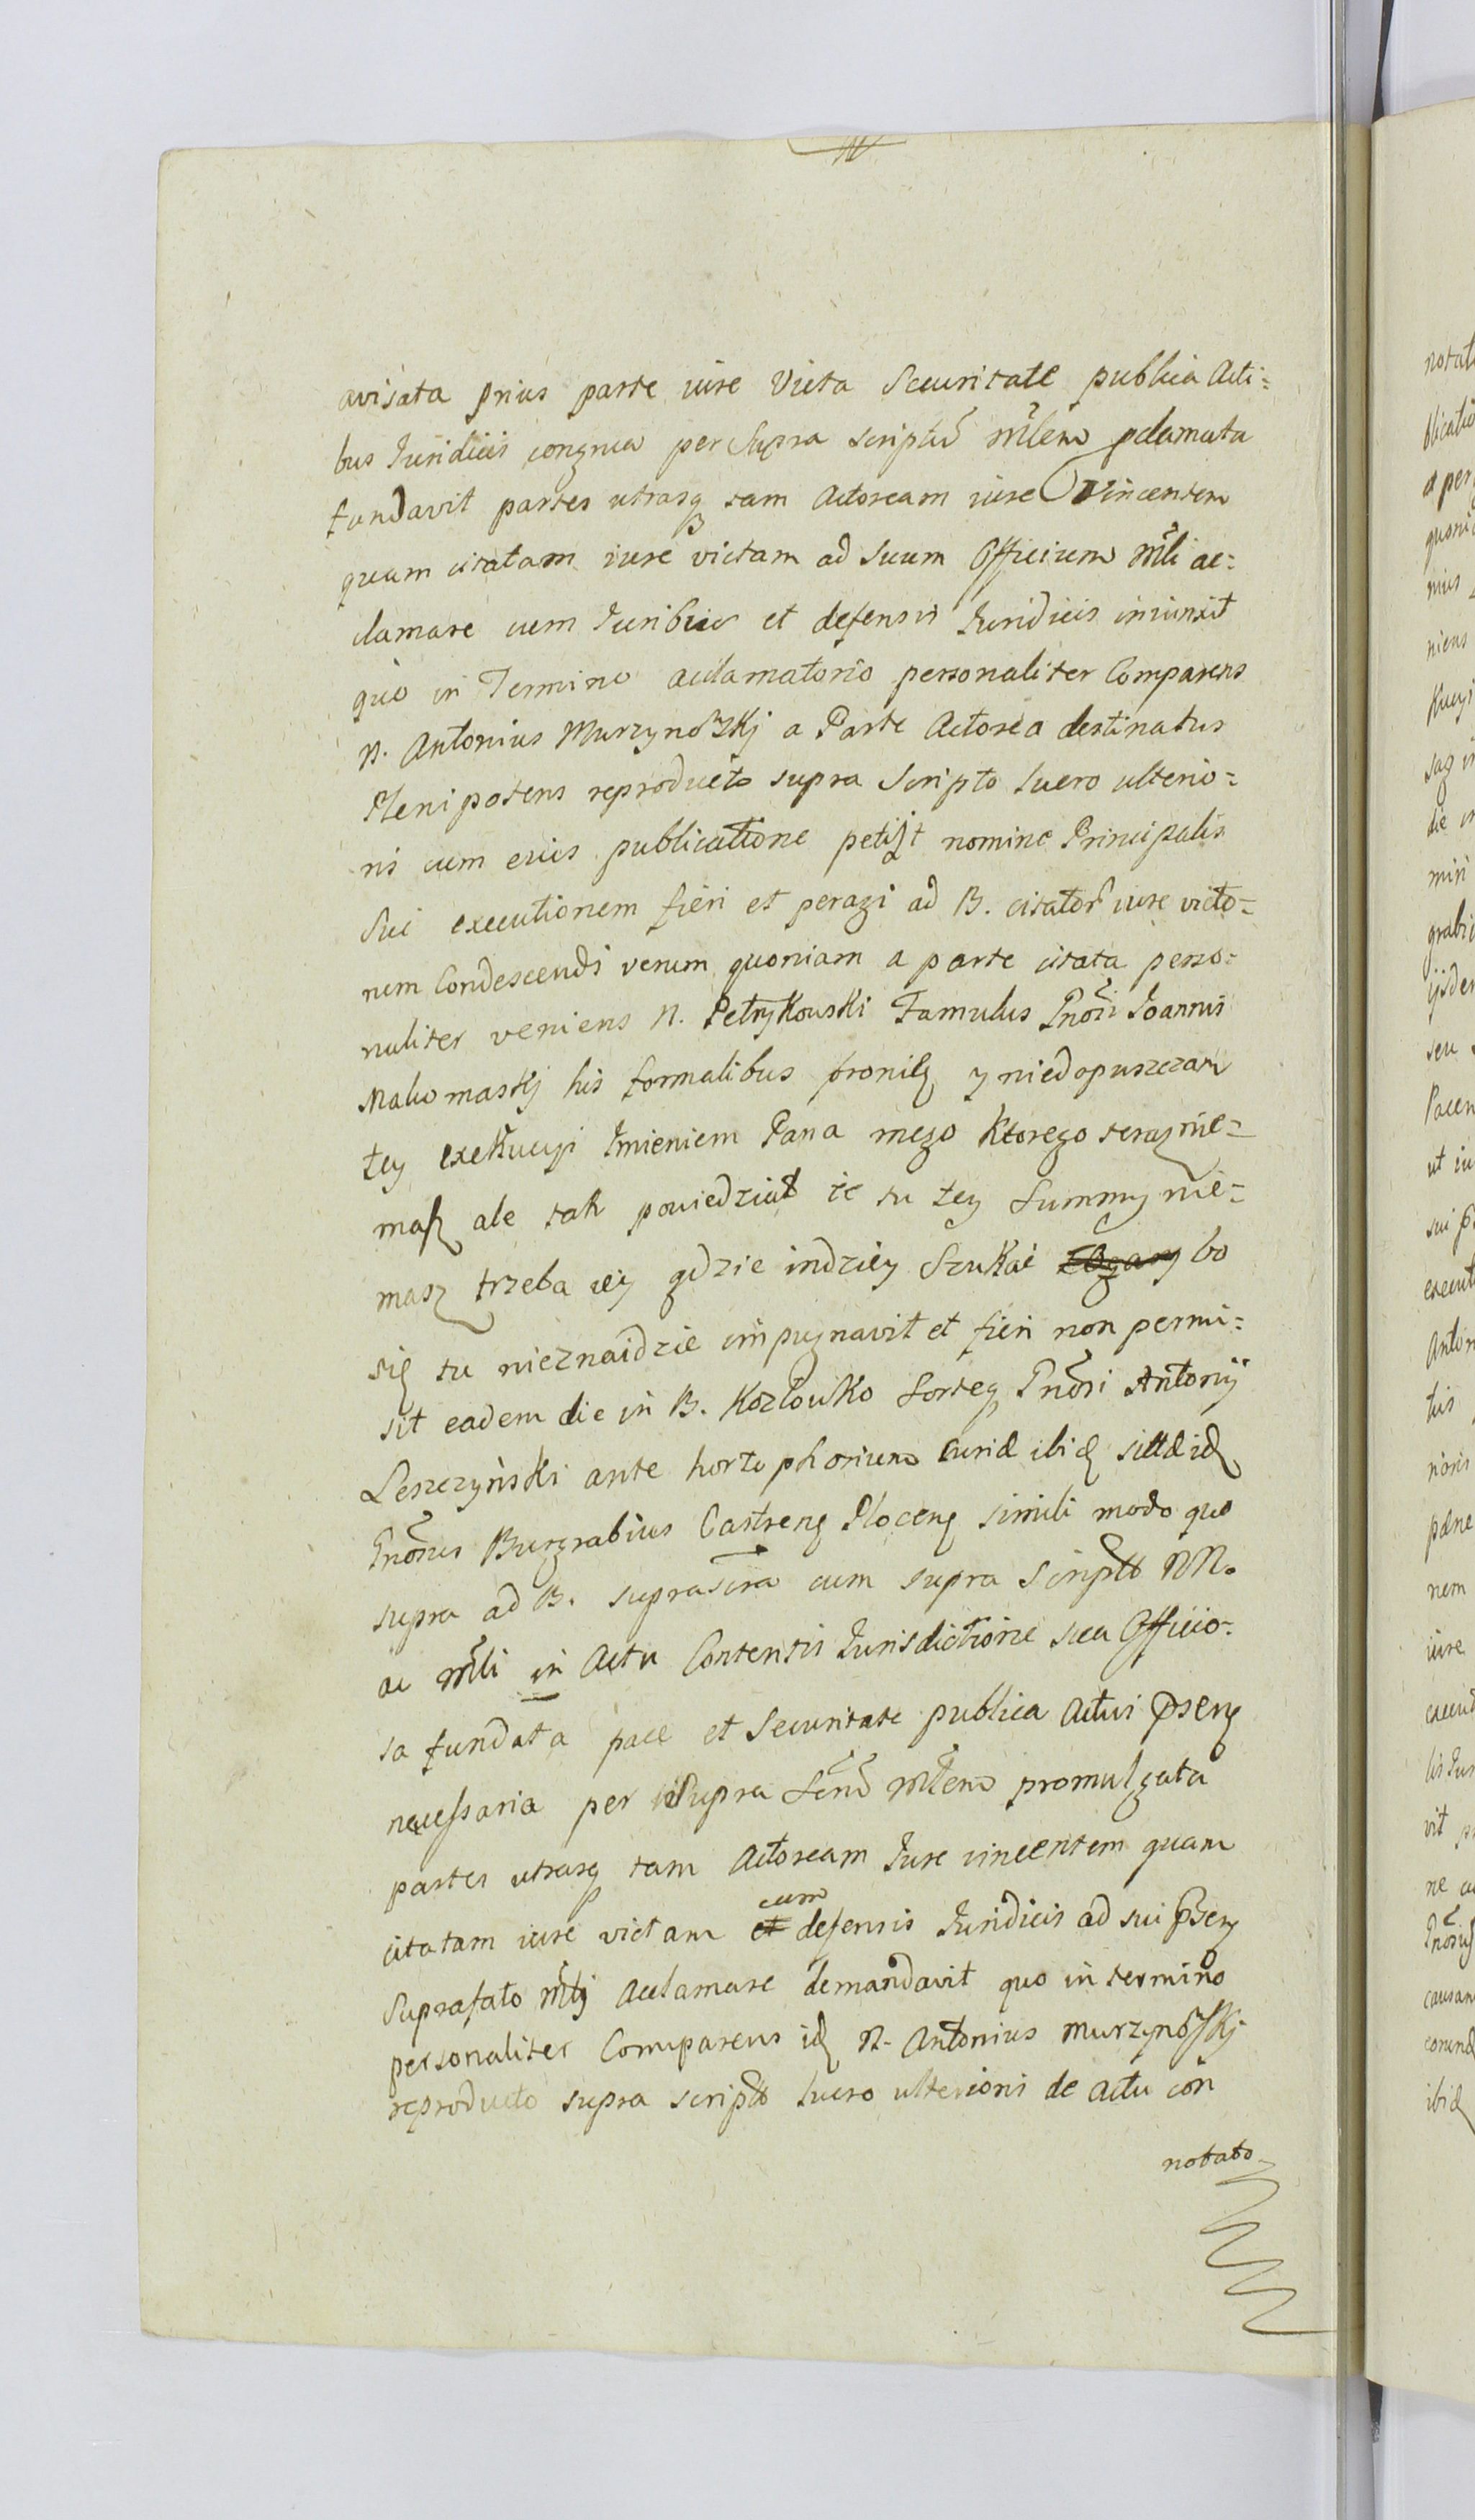 avisata prius parte iure victa Securitate publica Acti=
bus Juridicis congrua per Supra scriptũ Mlem pclamata
fundavit partes utrasq tam Actoream iure vincentem
quam citatam iure victam ad suum Officium Mli ac=
clamare cum Juribus et defensis Juridicis iniunxit
quo in Termino acclamatorio personaliter Comparens
N. Antonius Murzynowskj a Parte Actorea destinatus
Plenipotens reproducto supra Scripto lucro ulterio=
ris cum eius publicatione petijt nomine Principalis
Sui executionem fieri et peragi ad B. citator iure victo=
rum Condescendi verum quoniam a parte citata perso=
naliter veniens N. Petrykowski Famulus Gnõsi Joannis
Makomaskj his formalibus bronię y niedopuszczam
tey exekucyi Jmieniem Pana mego ktorego teraz nie=
masz ale tak powiedział że tu tey Summy nie=
masz trzeba iey gdzie indziey Szukać bo
się tu nieznaidzie impugnavit et fieri non permi=
sit eadem die in B. Kozłowko Sorteq Gnõsi Antonij
Leszczyński ante horto phorium Curiæ ibid sittæ id
Gnõsus Burgrabius Castren Plocen simili modo quo
supra ad B. suprascra cum supra Scriptt NN.
ac Mli in Actu Contentis Jurisdictione sua Officio=
sa fundata pace et Securitate publica Actui psen
necessaria per Supra Scrũ Mlem promulgata
partes utrasq tam Actoream Jure vincentem quam
citatam iure victam et cum defensis Juridicis ad sui psen
Suprafato Mlj Acclamare demandavit quo in termino
personaliter Comparens id N. Antonius Murzynowskj
reproducto supra scriptt lucro ulterioris de actu con
notato